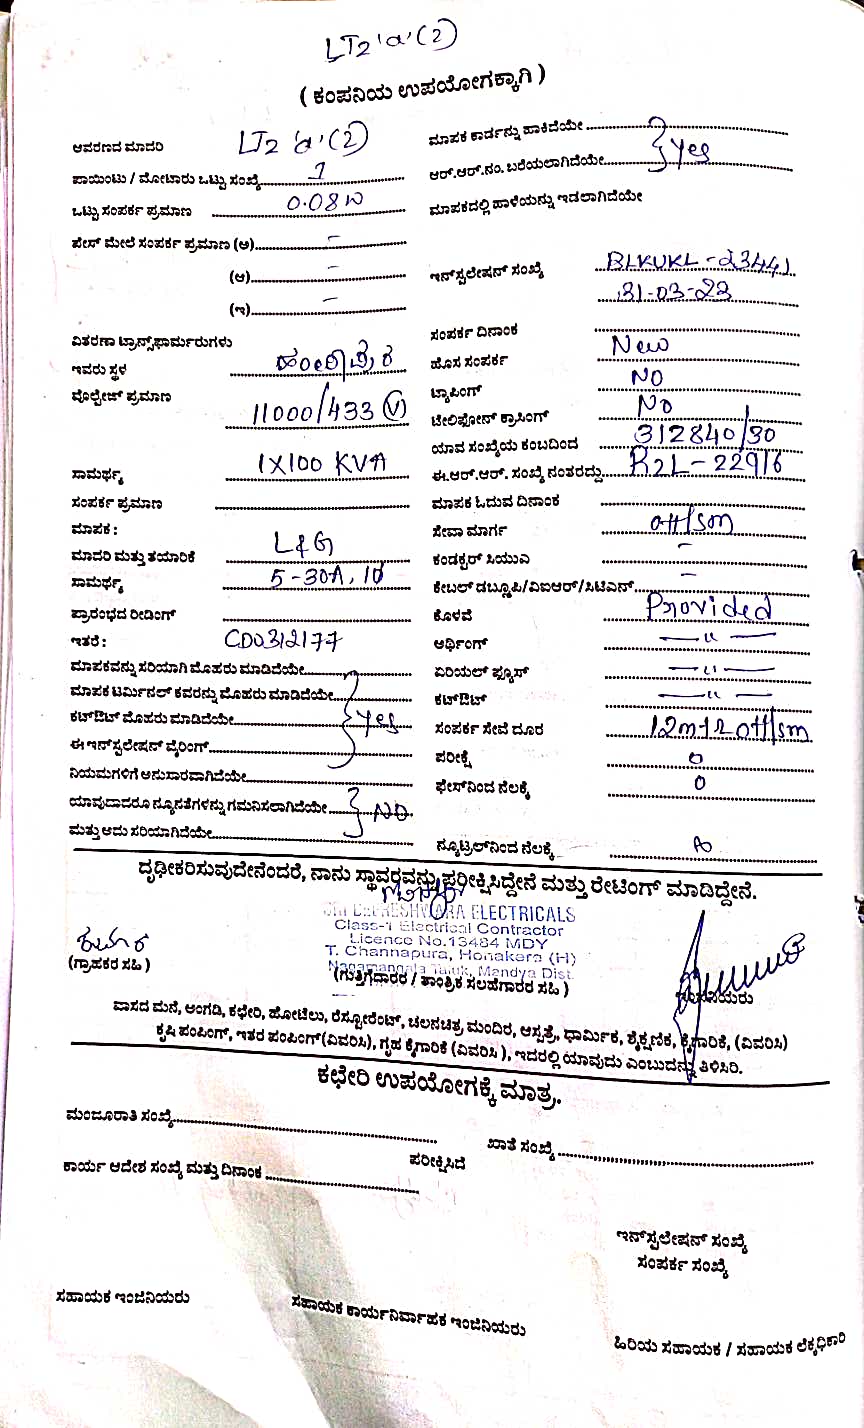 LT2 'a' (2)
( ಕಂಪನಿಯ ಉಪಯೋಗಕ್ಕಾಗಿ )
ಆವರಣದ ಮಾದರಿ LT2 'a' (2)
ಪಾಯಿಂಟು / ಮೋಟಾರು ಒಟ್ಟು ಸಂಖ್ಯೆ 1
ಒಟ್ಟು ಸಂಪರ್ಕ ಪ್ರಮಾಣ 0.08 W
ಫೇಸ್ ಮೇಲೆ ಸಂಪರ್ಕ ಪ್ರಮಾಣ (ಅ) –
(ಆ) –
(ಇ) –
ವಿತರಣಾ ಟ್ರಾನ್ಸ್‌ಫಾರ್ಮರುಗಳು
ಇವರು ಸ್ಥಳ
ವೋಲ್ಟೇಜ್ ಪ್ರಮಾಣ
11000/433 (V)
ಸಾಮರ್ಥ್ಯ 1X100 KVA
ಸಂಪರ್ಕ ಪ್ರಮಾಣ
ಮಾಪಕ :
ಮಾದರಿ ಮತ್ತು ತಯಾರಿಕೆ L&G
ಸಾಮರ್ಥ್ಯ 5-30A, 1Ø
ಪ್ರಾರಂಭದ ರೀಡಿಂಗ್
ಇತರೆ : CD0312177
ಮಾಪಕವನ್ನು ಸರಿಯಾಗಿ ಮೊಹರು ಮಾಡಿದೆಯೇ
ಮಾಪಕ ಟರ್ಮಿನಲ್ ಕವರನ್ನು ಮೊಹರು ಮಾಡಿದೆಯೇ
ಕಟ್‌ಔಟ್ ಮೊಹರು ಮಾಡಿದೆಯೇ Yes
ಈ ಇನ್‌ಸ್ಟಲೇಷನ್ ವೈರಿಂಗ್
ನಿಯಮಗಳಿಗೆ ಅನುಸಾರವಾಗಿದೆಯೇ
ಯಾವುದಾದರೂ ನ್ಯೂನತೆಗಳನ್ನು ಗಮನಿಸಲಾಗಿದೆಯೇ NO
ಮತ್ತು ಅದು ಸರಿಯಾಗಿದೆಯೇ
ಮಾಪಕ ಕಾರ್ಡನ್ನು ಹಾಕಿದೆಯೇ
ಆರ್.ಆರ್.ನಂ. ಬರೆಯಲಾಗಿದೆಯೇ Yes
ಮಾಪಕದಲ್ಲಿ ಹಾಳೆಯನ್ನು ಇಡಲಾಗಿದೆಯೇ
ಇನ್‌ಸ್ಟಲೇಷನ್ ಸಂಖ್ಯೆ BLKUKL-23441
31-03-23
ಸಂಪರ್ಕ ದಿನಾಂಕ
ಹೊಸ ಸಂಪರ್ಕ New
ಟ್ಯಾಪಿಂಗ್ NO
ಟೇಲಿಫೋನ್ ಕ್ರಾಸಿಂಗ್ NO
ಯಾವ ಸಂಖ್ಯೆಯ ಕಂಬದಿಂದ 312840/30
ಈ.ಆರ್.ಆರ್. ಸಂಖ್ಯೆ ನಂತರದ್ದು R2L-22916
ಮಾಪಕ ಓದುವ ದಿನಾಂಕ
ಸೇವಾ ಮಾರ್ಗ OH/sm
ಕಂಡಕ್ಟರ್ ಸಿಯುಎ –
ಕೇಬಲ್ ಡಬ್ಲ್ಯೂಪಿ/ವಿಐಆರ್/ಸಿಟಿಎನ್ –
ಕೊಳವೆ Provided
ಅರ್ಥಿಂಗ್ — " —
ಏರಿಯಲ್ ಫ್ಯೂಸ್ — " —
ಕಟ್‌ಔಟ್ — " —
ಸಂಪರ್ಕ ಸೇವೆ ದೂರ 12mt OH/sm
ಪರೀಕ್ಷೆ 0
ಫೇಸ್‌ನಿಂದ ನೆಲಕ್ಕೆ 0
ನ್ಯೂಟ್ರಲ್‌ನಿಂದ ನೆಲಕ್ಕೆ
ದೃಢೀಕರಿಸುವುದೇನೆಂದರೆ, ನಾನು ಸ್ಥಾವರವನ್ನು ಪರೀಕ್ಷಿಸಿದ್ದೇನೆ ಮತ್ತು ರೇಟಿಂಗ್ ಮಾಡಿದ್ದೇನೆ.
ELECTRICALS
Class-1 Electrical Contractor
Licence No.13484 MDY
T. Channapura, Honakere (H)
Nagamangala Taluk, Mandya Dist.
(ಗ್ರಾಹಕರ ಸಹಿ )
(ಗುತ್ತಿಗೆದಾರರ / ತಾಂತ್ರಿಕ ಸಲಹೆಗಾರರ ಸಹಿ )
ವಾಸದ ಮನೆ, ಅಂಗಡಿ, ಕಛೇರಿ, ಹೋಟೆಲು, ರೆಸ್ಟೋರೆಂಟ್, ಚಲನಚಿತ್ರ ಮಂದಿರ, ಆಸ್ಪತ್ರೆ, ಧಾರ್ಮಿಕ, ಶೈಕ್ಷಣಿಕ, ಕೈಗಾರಿಕೆ, (ವಿವರಿಸಿ)
ಕೃಷಿ ಪಂಪಿಂಗ್, ಇತರ ಪಂಪಿಂಗ್(ವಿವರಿಸಿ), ಗೃಹ ಕೈಗಾರಿಕೆ (ವಿವರಿಸಿ ), ಇದರಲ್ಲಿ ಯಾವುದು ಎಂಬುದನ್ನು ತಿಳಿಸಿರಿ.
ಕಛೇರಿ ಉಪಯೋಗಕ್ಕೆ ಮಾತ್ರ.
ಮಂಜೂರಾತಿ ಸಂಖ್ಯೆ
ಖಾತೆ ಸಂಖ್ಯೆ
ಪರೀಕ್ಷಿಸಿದೆ
ಕಾರ್ಯ ಆದೇಶ ಸಂಖ್ಯೆ ಮತ್ತು ದಿನಾಂಕ
ಇನ್‌ಸ್ಟಲೇಷನ್ ಸಂಖ್ಯೆ
ಸಂಪರ್ಕ ಸಂಖ್ಯೆ
ಸಹಾಯಕ ಇಂಜಿನಿಯರು
ಸಹಾಯಕ ಕಾರ್ಯನಿರ್ವಾಹಕ ಇಂಜಿನಿಯರು
ಹಿರಿಯ ಸಹಾಯಕ / ಸಹಾಯಕ ಲೆಕ್ಕಧಿಕಾರಿ